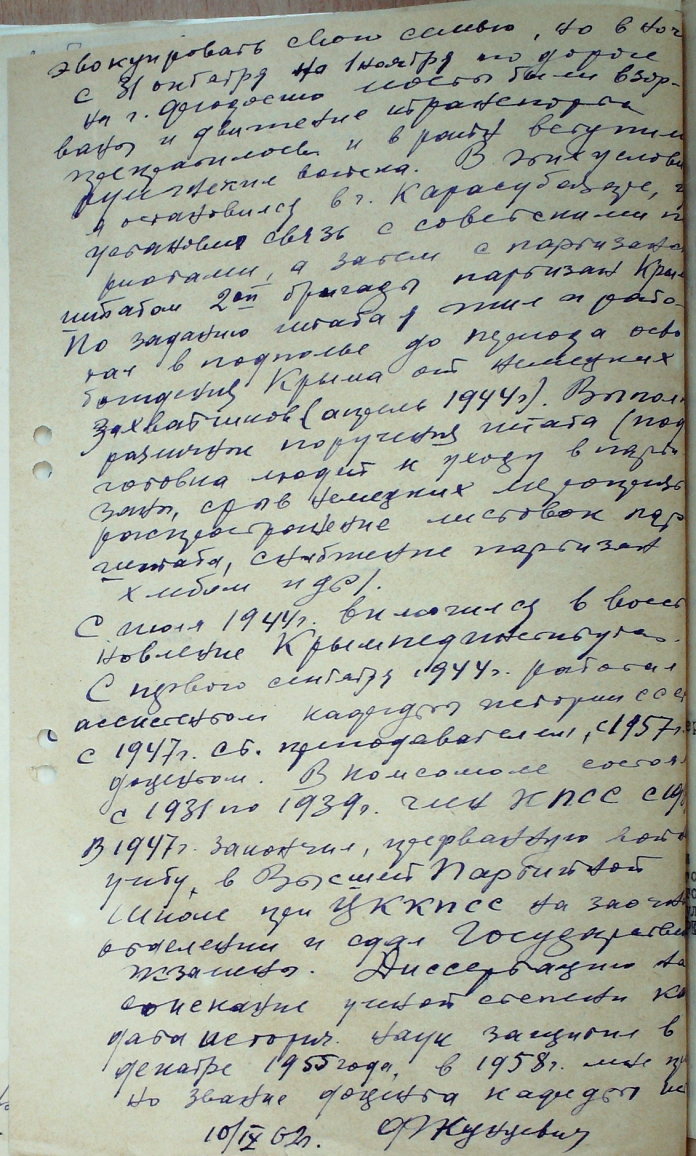 эвакуировать свою семью, но в ноч
с 31 октября на 1 ноября по дороге
на г. Феодосию мосты были взор-
ваны и движение транспорта
прекратилось и в район вступили
румынские войска. В этих услови
я остановился в г. Карасубазаре,
установил связь с советскими п
риотами, а затем с партизанс
штабом 2ой бригады партизан Крым
По заданию штаба я жил и рабо-
тал в подполье до периода осво
бождения Крыма от немецких
захватчиков (апрель 1944 г). Выпол
различные поручения штаба (под
готовка людей к уходу в парти
заны, срыв немецких мероприя
распространение листовок пар
штаба, снабжение партизан
хлебом и др).
С июля 1944 г. включился в восст
новление Крымпединститута.
С первого сентября 1944 г. работал
ассистентом кафедры истории СССР
с 1947 г. ст. преподавателем, с 1957 г.
доцентом. В комсомоле состоял
с 1931 по 1939 г. член КПСС с 19
В 1947 г. закончил, прерванную
учебу, в Высшей Партийной
Школе при ЦК КПСС на заочн
отделении и сдал Государствен
экзамены. Диссертацию на
соискание ученой степени ка
дата историч. наук защитил в
декабре 1955 года, в 1958 г. мне пр
но звание доцента кафедры ис
10/IX 62 г.